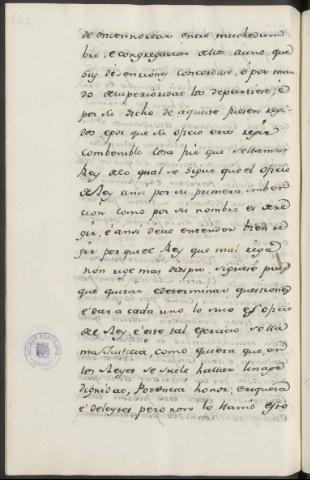 de enseñorear entre muchedum
bre, e congregacion de los que
sus disenciones concordase, o por man
do de superioridad los departiese; e
por su dicho de aqueste fuesen regi
dos, e por que su oficio era regir
combenible cosa fue que se llamase
Rey, de lo qual se sigue que el oficio
de Rey, ansi por su primera imben
cion como por su nombre es de re
gir, e ansi deve entender bien re
gir por que el Rey que mal rige
non rige mas disipa, siguese pues
que quitar e determinar questiones
e dar a cada uno lo suyo es oficio
de Rey, e este tal exercicio se lla
ma Justicia, como quiera que en
los Reyes se suele hallar linage
dignidad, Potencia honor, e riqueza
e deleytes, pero non lo llamó esto